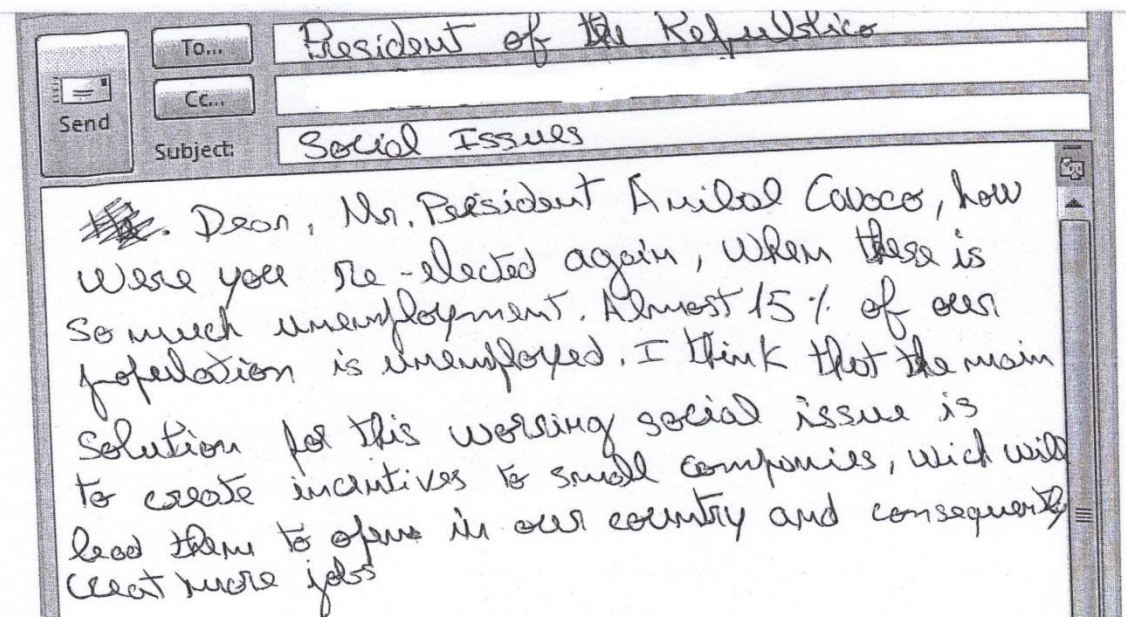 To...
President of the Republico
Cc...
Send
Subject:
Social Issues
Dear, Mr. President Anibal Cavaco, how
were you re-elected again, when there is
so much unemployment. Almost 15% of our
population is unemployed. I think that the main
solution for this worsing social issue is
to create incentives to small companies, wich will
lead them to open in our country and consequently
creat more jobs